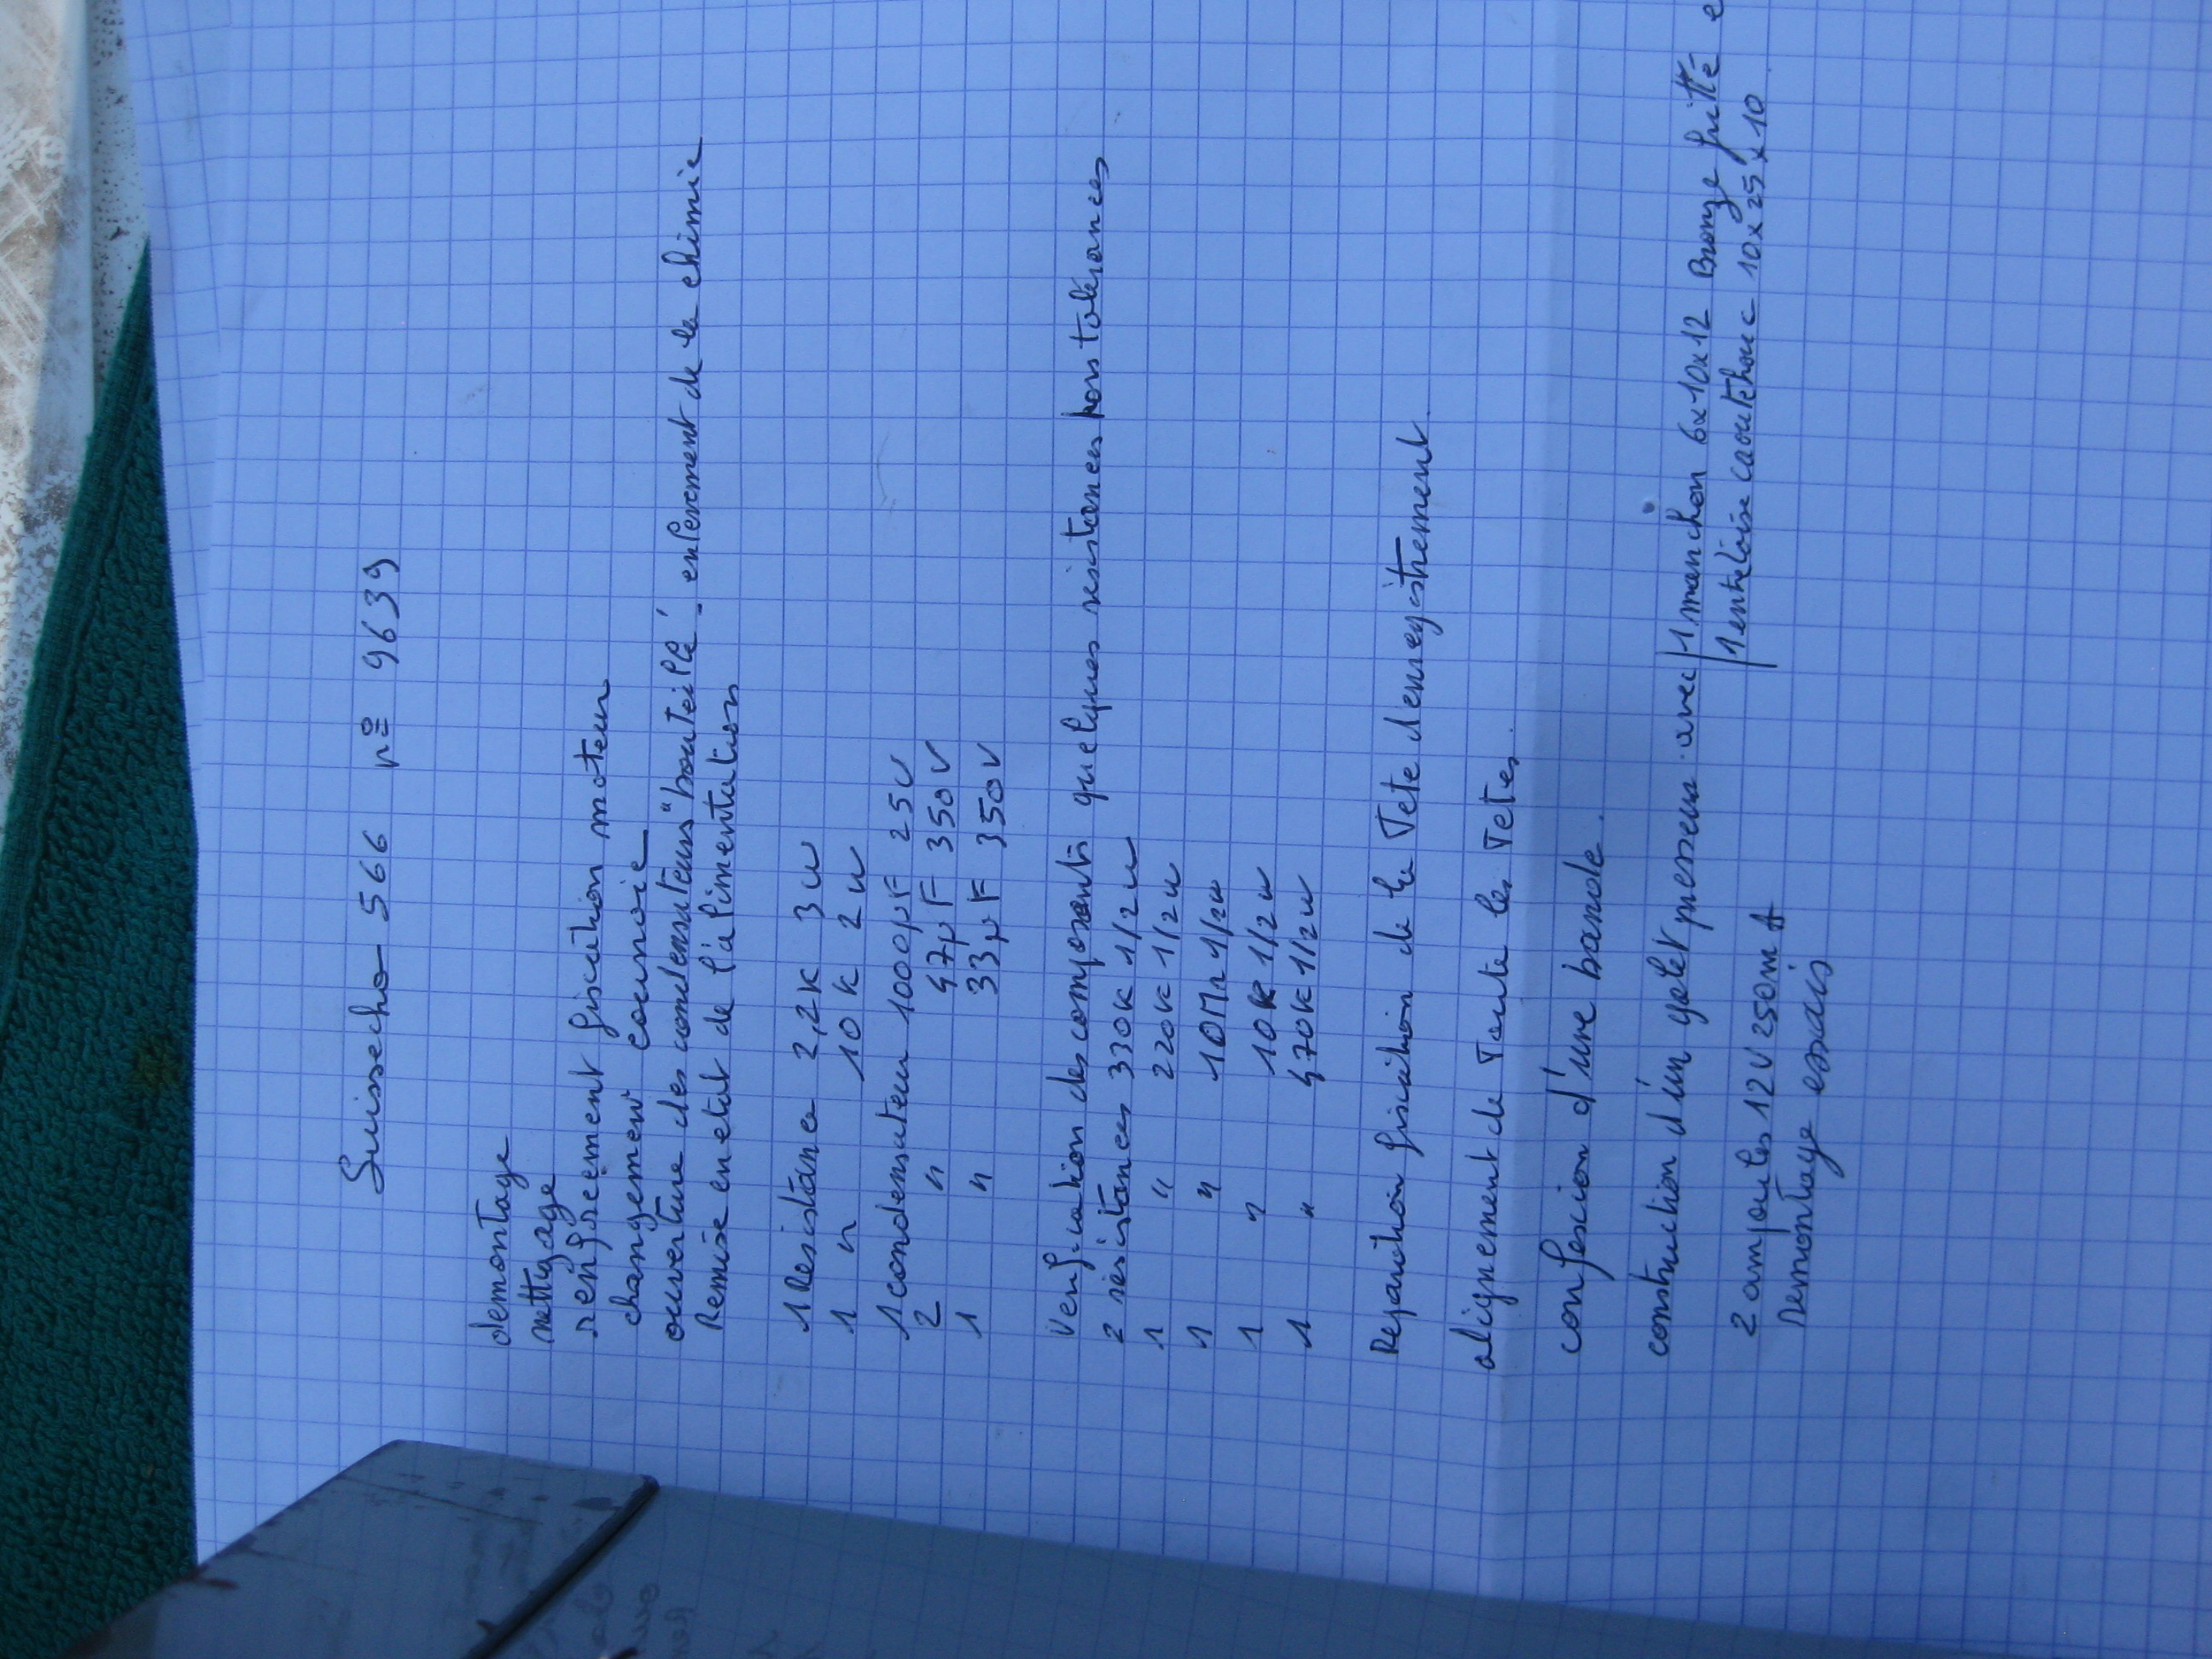 Suissecho 566 nº 9639
demontage
nettyage
renforcement fiscation moteur
changement courroie
ouverture des condensateurs "bouteille" - enlevement de la chimie
Remise en etat de l'alimentation
1 Resistance 2,2K 3W
1 " 10K 2W
1 condensateur 1000µF 25V
2 " 47µF 350V
1 " 33µF 350V
Verification des composants quelques resistances hors tolérances
2 résistances 330K 1/2W
1 " 220K 1/2W
1 " 10MΩ 1/2W
1 " 10K 1/2W
1 " 470K 1/2W
Reparation fiscation de la Tete d'enregistrement
alignement de Toute les Tetes.
confection d'une bande.
construction d'un galet presseur avec 1 manchon 6x10x12 Bronze fritté e
1 entretoise caoutchouc 10x25x10
2 ampoules 12V 250mA
Remontage essais